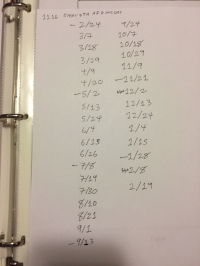 - 2/24
3/7
3/18
3/29
4/9
4/20
- 5/2
5/13
5/24
6/4
6/15
6/26
- 7/8
7/19
7/30
8/10
8/21
9/1
- 9/13
9/24
10/7
10/18
10/29
11/9
- 11/21
12/2
12/13
12/24
1/4
1/15
- 1/28
2/8
2/19